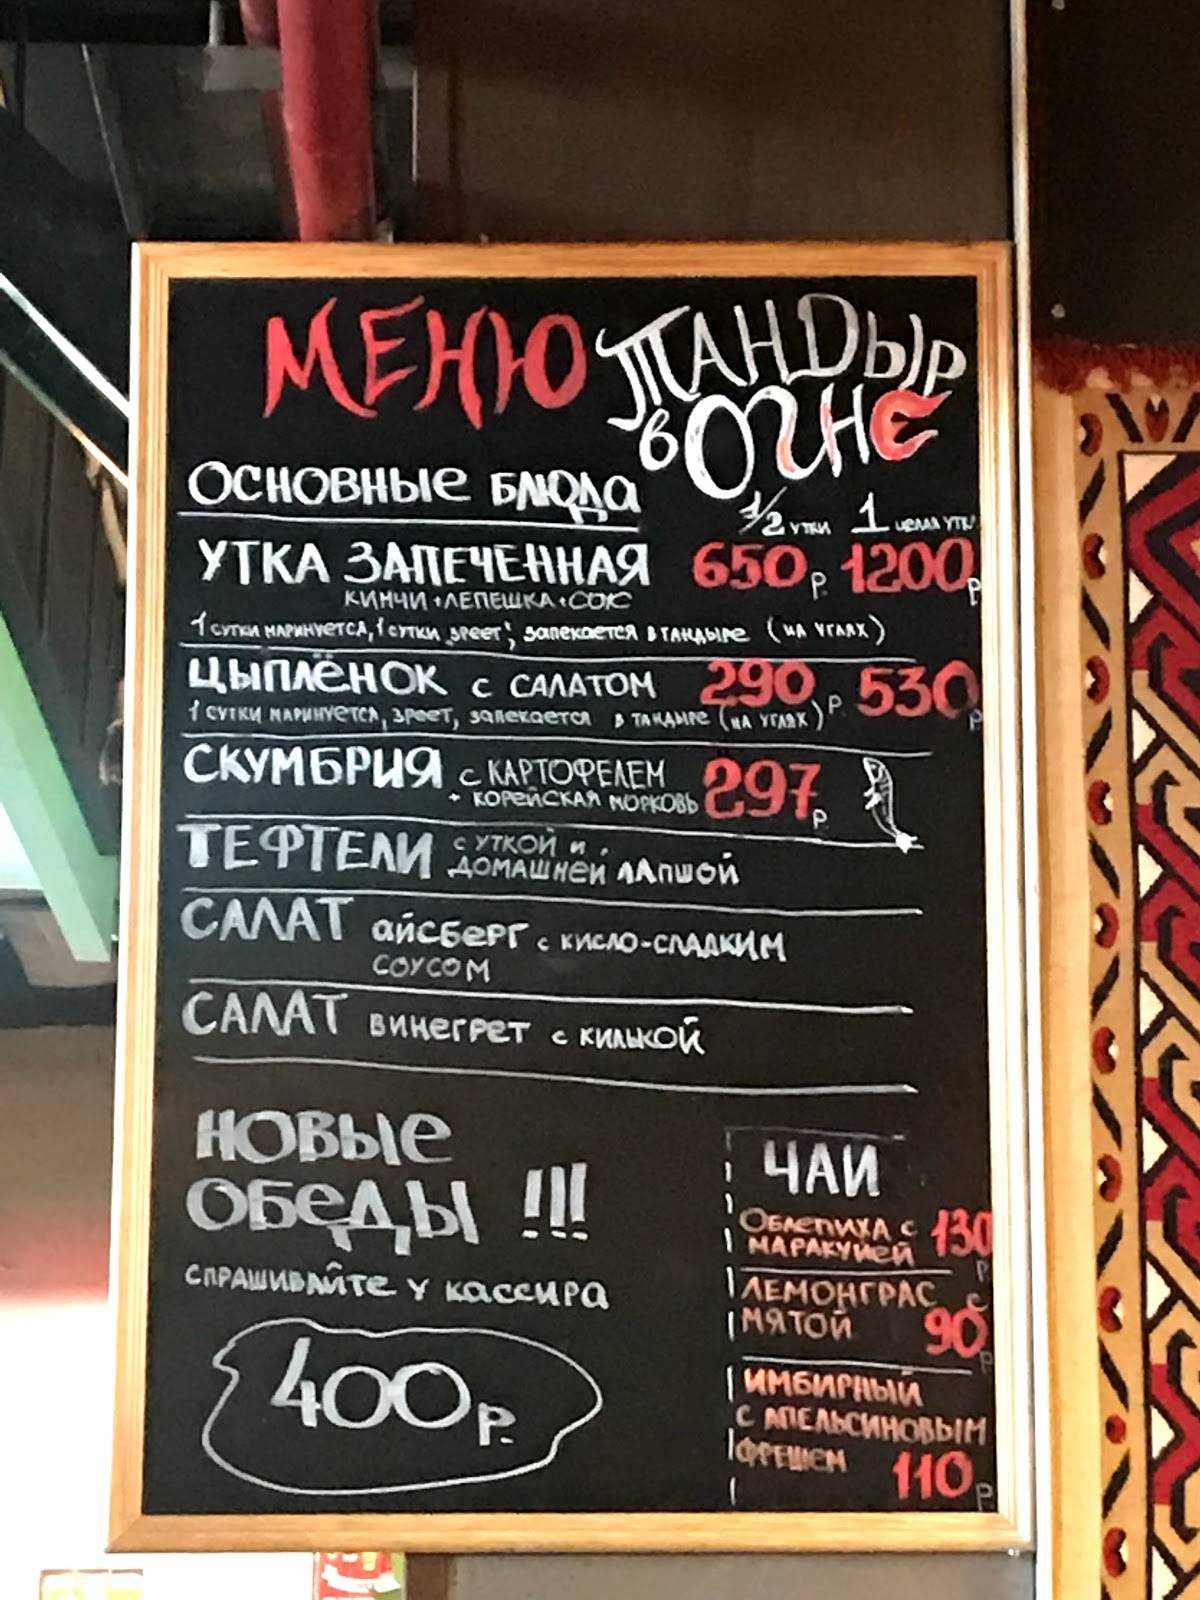 МЕНЮ ТАНДЫР
в ОГНЕ
ОСНОВНЫЕ БЛЮДА
1/2 утки 1 целая утк
УТКА ЗАПЕЧЕННАЯ 650р. 1200р
КИМЧИ+ЛЕПЕШКА+СОК
1 сутки маринуется, 1 сутки „зреет“, запекается в тандыре (на углях)
ЦЫПЛЁНОК с САЛАТОМ 290р 530р
1 сутки маринуется, зреет, запекается в тандыре (на углях)
СКУМБРИЯ с КАРТОФЕЛЕМ 297р
+ КОРЕЙСКАЯ МОРКОВЬ
ТЕФТЕЛИ с УТКОЙ и
ДОМАШНЕЙ ЛАПШОЙ
САЛАТ айсберг с кисло-сладким
соусом
САЛАТ винегрет с килькой
НОВЫЕ
ОБЕДЫ !!!
СПРАШИВАЙТЕ У КАССИРА
400р.
ЧАИ
Облепиха с
маракуйей 130р
ЛЕМОНГРАС с
МЯТОЙ 90р
ИМБИРНЫЙ
С АПЕЛЬСИНОВЫМ
ФРЕШЕМ 110р